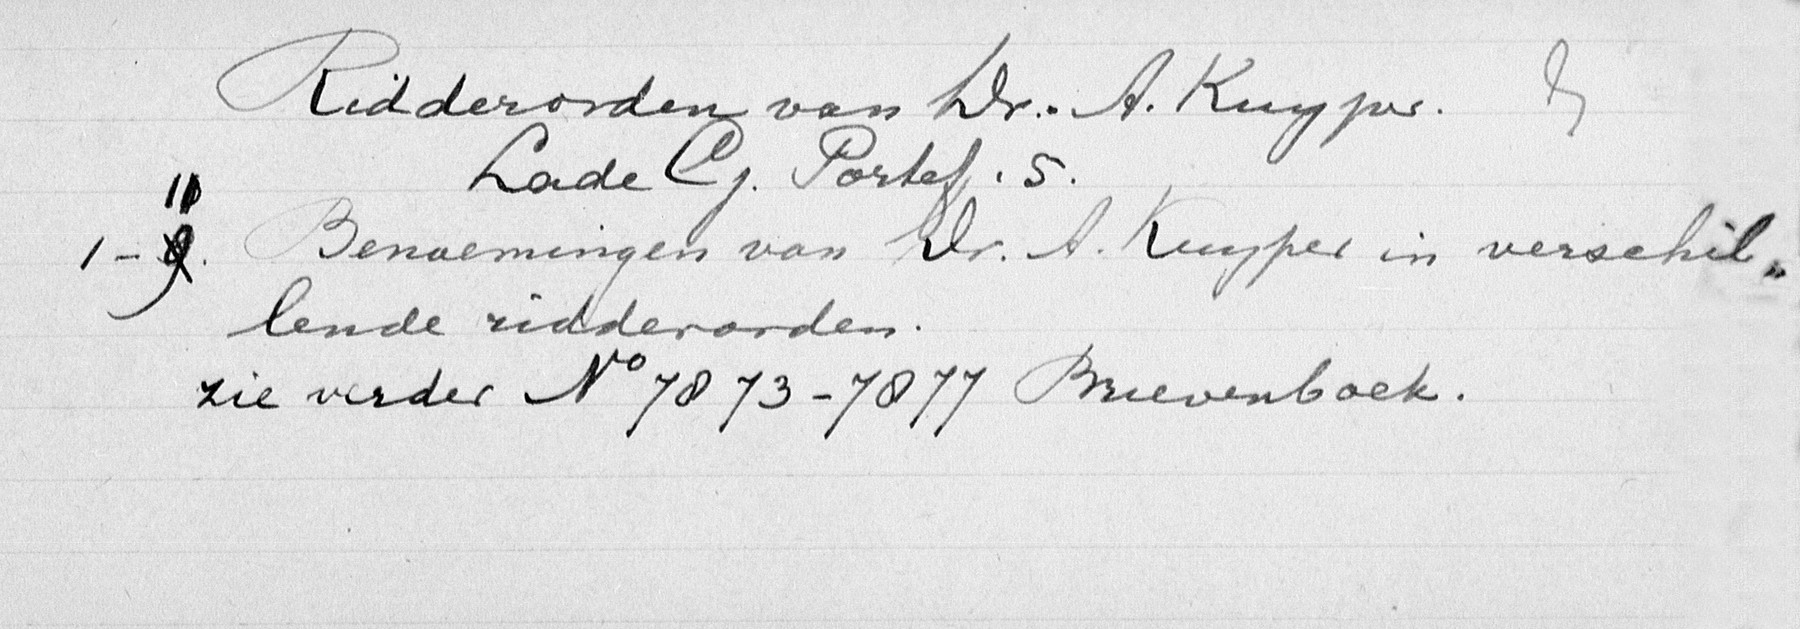 Ridderorden van Dr. A. Kuyper.
Lade Cj. Portef. 5.
1 - 11. Benoemingen van Dr. A. Kuyper in verschil„
lende ridderorden.
zie verder No 7873-7877 Brievenboek.